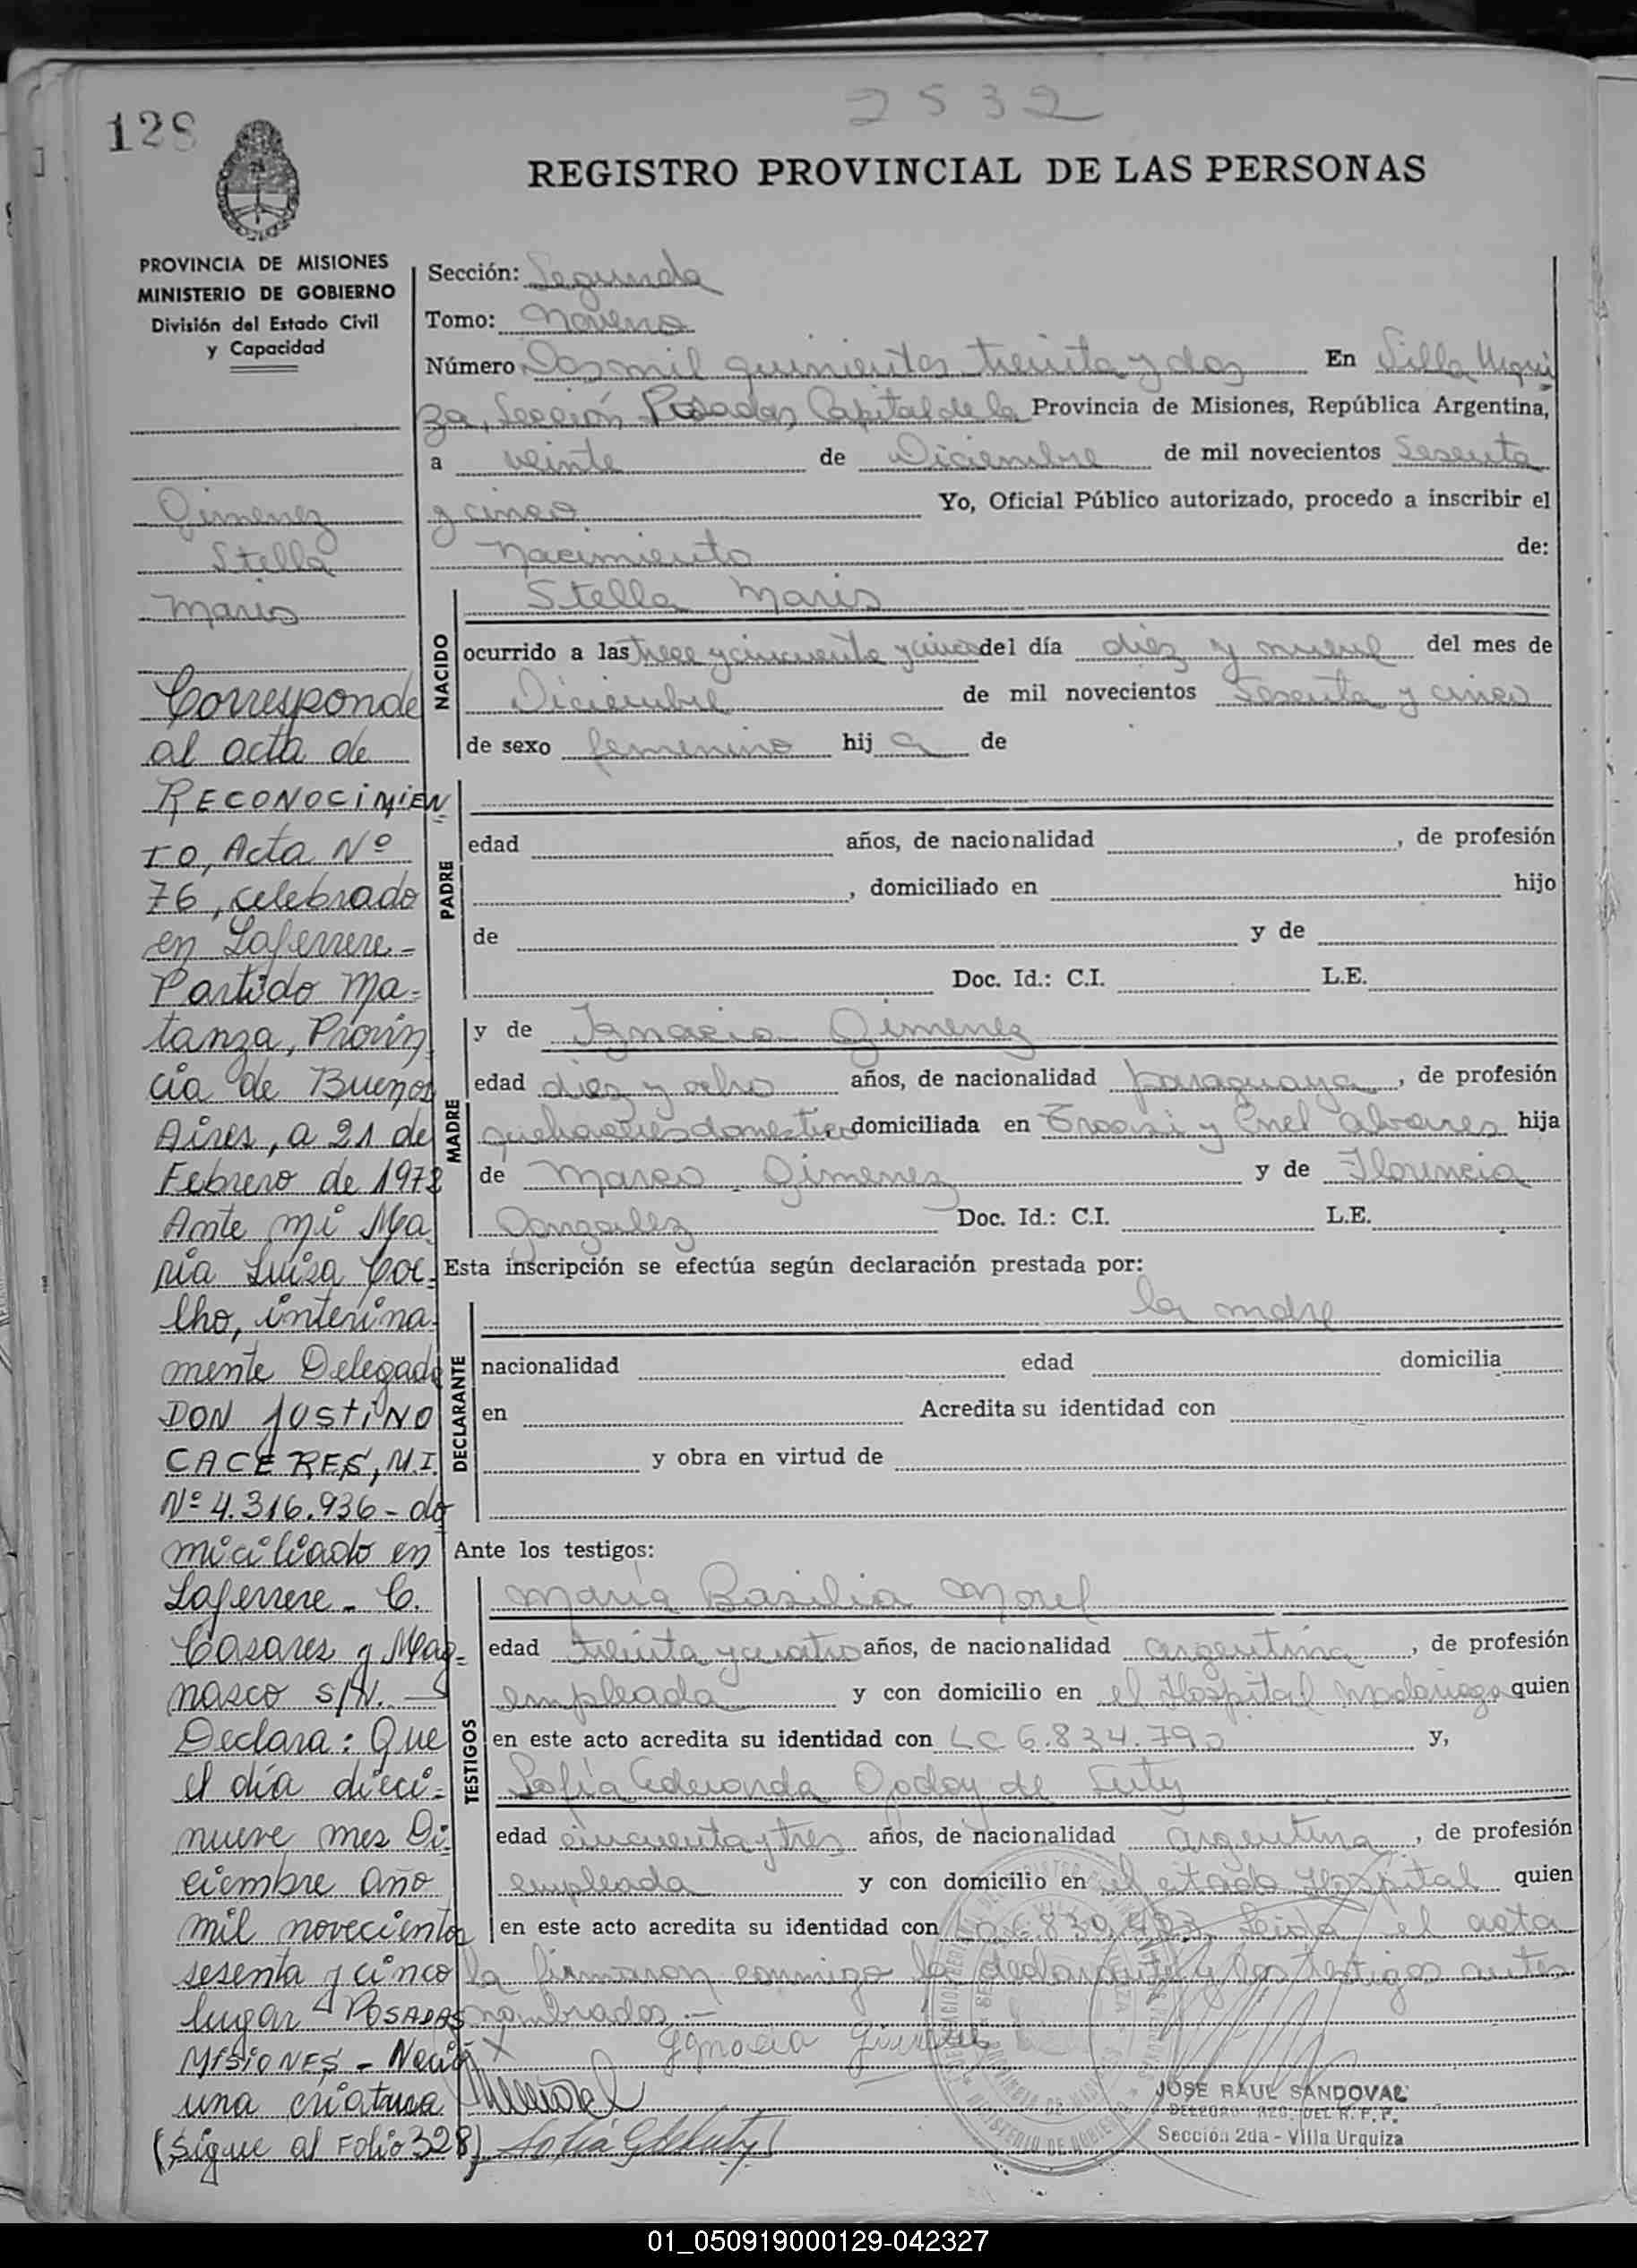 2532
128
REGISTRO PROVINCIAL DE LAS PERSONAS
PROVINCIA DE MISIONES
MINISTERIO DE GOBIERNO
División del Estado Civil
y Capacidad
Gimenez
Stella
Maris
Corresponde
al acta de
RECONOCIMIEN
TO, Acta Nº
76, celebrado
en Laferrere -
Partido Ma-
tanza, Provin
cia de Buenos
Aires, a 21 de
Febrero de 1978
Ante mi Ma
ria Luisa Coe-
lho, interina-
mente Delegada
DON JUSTINO
CACERES, M.I.
Nº 4.316.936 - do
miciliado en
Laferrere - C.
Casares y Mag-
nasco S/N. -
Declara: Que
el día dieci-
nueve mes Di-
ciembre año
mil novecientos
sesenta y cinco
lugar POSADAS
MISIONES - Nació
una criatura
(Sigue al Folio 328)
Sección: Segunda
Tomo: Noveno
Número Dos mil quinientos treinta y dos En Villa Urqui
za, Sección Posadas, Capital de la Provincia de Misiones, República Argentina,
a veinte de Diciembre de mil novecientos Sesenta
y cinco Yo, Oficial Público autorizado, procedo a inscribir el
Nacimiento de:
NACIDO
Stella Maris
ocurrido a las trece y cincuenta y cinco del día diez y nueve del mes de
Diciembre de mil novecientos Sesenta y cinco
de sexo femenino hij a de
PADRE
edad años, de nacionalidad , de profesión
, domiciliado en hijo
de y de
Doc. Id.: C.I. L.E.
MADRE
y de Ignacia Gimenez
edad diez y ocho años, de nacionalidad paraguaya, de profesión
quehaceres domestico domiciliada en y Cnel Alvarez hija
de Marco Gimenez y de Florencia
Gonzalez Doc. Id.: C.I. L.E.
Esta inscripción se efectúa según declaración prestada por:
DECLARANTE
la madre
nacionalidad edad domicilia
en Acredita su identidad con
y obra en virtud de
Ante los testigos:
TESTIGOS
María Basilia Morel
edad treinta y cuatro años, de nacionalidad argentina, de profesión
empleada y con domicilio en el Hospital Madariaga quien
en este acto acredita su identidad con LC 6.834.790 y,
Sofía Godoy de
edad cincuenta y tres años, de nacionalidad argentina, de profesión
empleada y con domicilio en el citado Hospital quien
en este acto acredita su identidad con Leida el acta
la firmaron conmigo la declarante y los testigos antes
nombrados.-
Ignacia Gimenez
JOSE RAUL SANDOVAL
DELEGADO REG. DEL R. P. P.
Sección 2da - Villa Urquiza
01_050919000129-042327